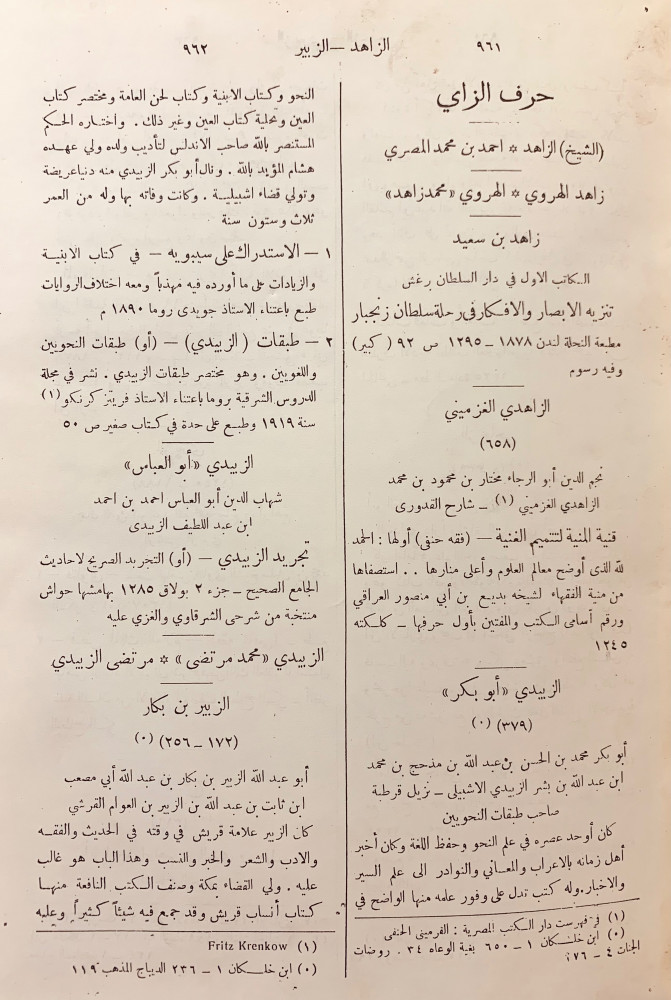 ٩٦١
الزاهد — الزبير
٩٦٢
حرف الزاي
(الشيخ) الزاهد * احمد بن محمد المصري
زاهد الهروي * الهروي «محمد زاهد»
زاهد بن سعيد
الكاتب الاول في دار السلطان برغش
تنزيه الابصار والافكار في رحلة سلطان زنجبار
مطبعة النحلة لندن ١٨٧٨ — ١٢٩٥ ص ٩٢ (كبير)
وفيه رسوم
الزاهدي الغزميني
(٦٥٨)
نجم الدين أبو الرجاء مختار بن محمود بن محمد
الزاهدي الغزميني (١) — شارح القدورى
قنية المنية لتتميم الغنية — (فقه حنفى) أولها : الحمد
لله الذى أوضح معالم العلوم وأعلى منارها . . استصفاها
من منية الفقهاء لشيخه بديع بن أبي منصور العراقي
ورقم أسامى الكتب والمفتين بأول حرفها — كلكته
١٢٤٥
الزبيدي «أبو بكر»
(٣٧٩) (٠)
أبو بكر محمد بن الحسن بن عبد الله بن مذحج بن محمد
ابن عبد الله بن بشر الزبيدي الاشبيلى — نزيل قرطبة
صاحب طبقات النحويين
كان أوحد عصره في علم النحو وحفظ اللغة وكان أخبر
أهل زمانه بالاعراب والمعاني والنوادر الى علم السير
والاخبار. وله كتب تدل على وفور علمه منها الواضح في
(١) في فهرست دار الكتب المصرية : الغرميني الحنفى
(٠) ابن خلكان ١ — ٦٥٠ بغية الوعاه ٣٤ . روضات
الجنات ٤ — ١٧٦
النحو وكتاب الابنية وكتاب لحن العامة ومختصر كتاب
العين وتحلية كتاب العين وغير ذلك . واختاره الحكم
المستنصر بالله صاحب الاندلس لتأديب ولده ولي عهده
هشام المؤيد بالله . ونال أبو بكر الزبيدي منه دنيا عريضة
وتولي قضاء اشبيلية . وكانت وفاته بها وله من العمر
ثلاث وستون سنة
١ — الاستدراك على سيبويه — في كتاب الابنية
والزيادات على ما أورده فيه مهذباً ومعه اختلاف الروايات
طبع باعتناء الاستاذ جويدى روما ١٨٩٠ م
٢ — طبقات (الزبيدي) — (أو) طبقات النحويين
واللغويين . وهو مختصر طبقات الزبيدي . نشر في مجلة
الدروس الشرقية بروما باعتناء الاستاذ فريتز كرنكو (١)
سنة ١٩١٩ وطبع على حدة في كتاب صغير ص ٥٠
الزبيدي «أبو العباس»
شهاب الدين أبو العباس احمد بن احمد
ابن عبد اللطيف الزبيدى
تجريد الزبيدي — (أو) التجريد الصريح لاحاديث
الجامع الصحيح — جزء ٢ بولاق ١٢٨٥ بهامشها حواش
منتخبة من شرحى الشرقاوي والغزي عليه
الزبيدي «محمد مرتضى» * مرتضى الزبيدي
الزبير بن بكار
(١٧٢ — ٢٥٦) (٠)
أبو عبد الله الزبير بن بكار بن عبد الله أبي مصعب
ابن ثابت بن عبد الله بن الزبير بن العوام القرشي
كان الزبير علامة قريش في وقته في الحديث والفقه
والادب والشعر والخبر والنسب وهذا الباب هو غالب
عليه . ولي القضاء بمكة وصنف الكتب النافعة منها
كتاب أنساب قريش وقد جمع فيه شيئاً كثيراً وعليه
(١) Fritz Krenkow
(٠) ابن خلكان ١ — ٢٣٦ الديباج المذهب ١١٩